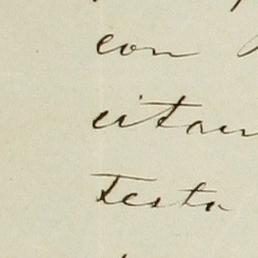 con
citan
Testa